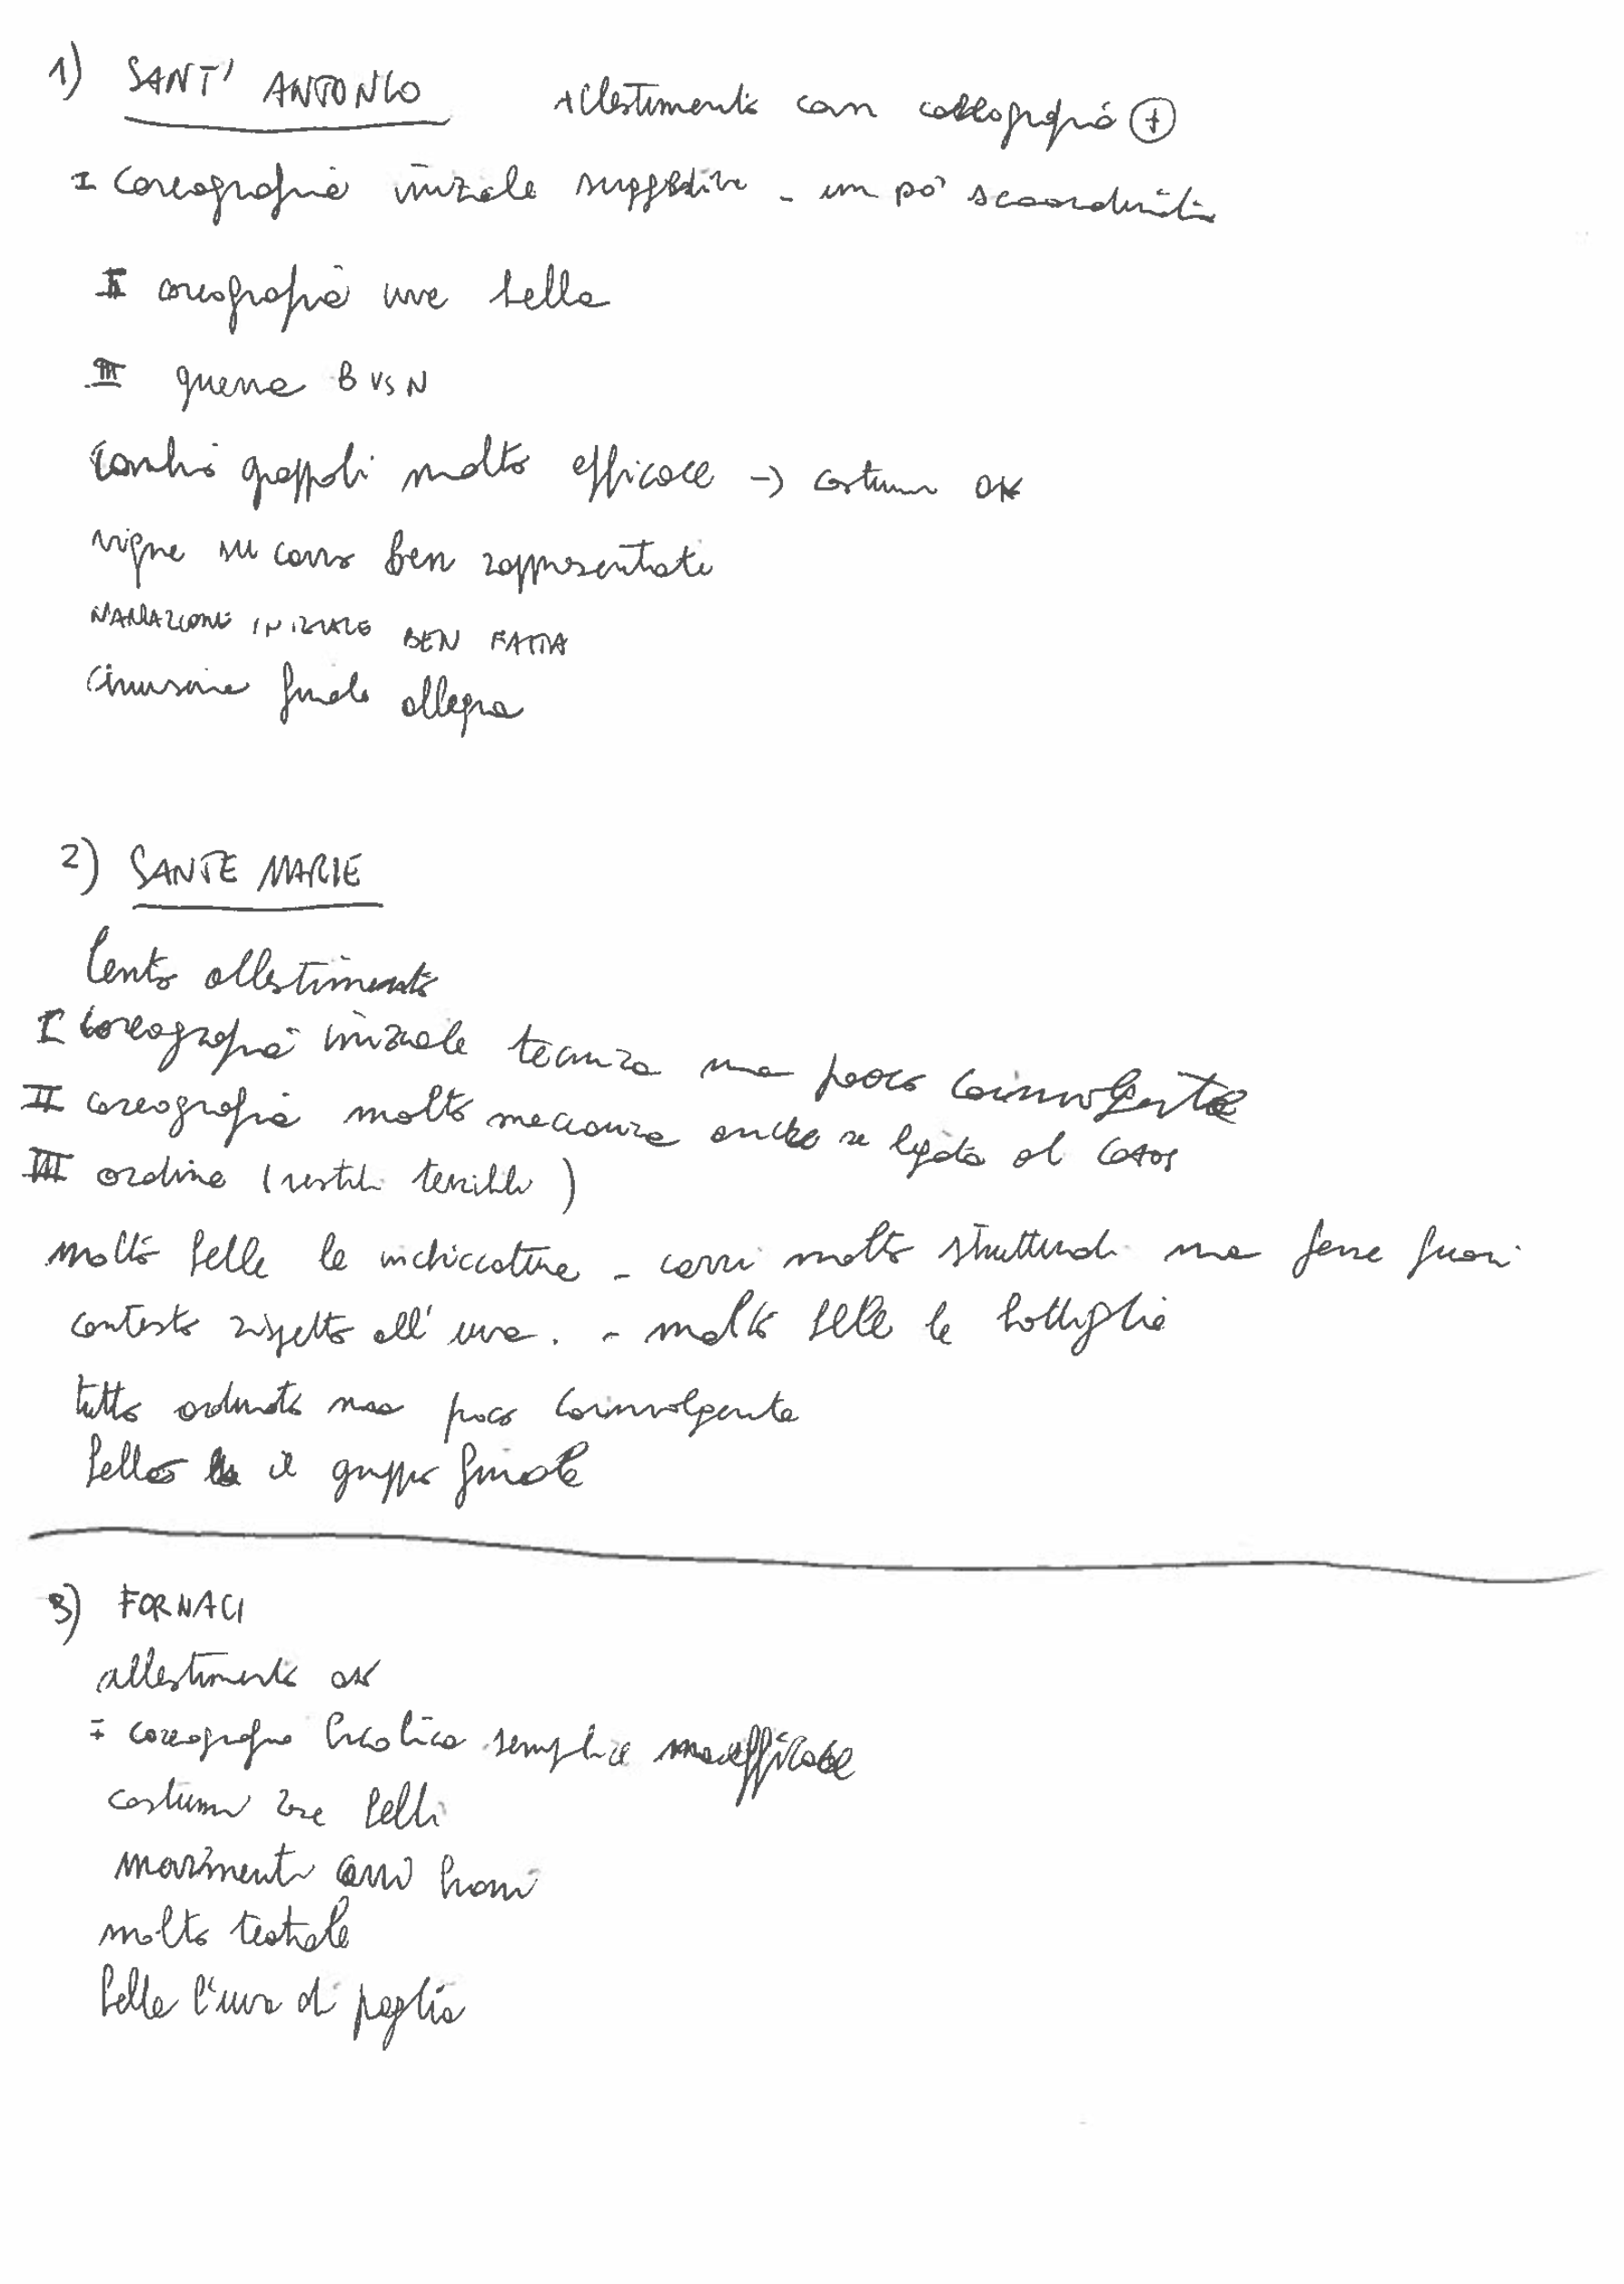 1) SANT' ANTONIO Allestimento con coreografia +
I Coreografia iniziale suggestiva - un pò scoordinata
II coreografia uve bella
III guerra B vs N
Cambio grappoli molto efficace -> costumi OK
vigne su carro ben rappresentate
NARRAZIONE INIZIALE BEN FATTA
Chiusura finale allegra
2) SANTE MARIE
Lento allestimento
I Coreografia iniziale tecnica ma poco coinvolgente
II coreografia molto meccanica anche se legata al caos
III ordine (vestiti terribili)
molto belle le - carri molto strutturati ma forse fuori
contesto rispetto all' uva. - molto belle le bottiglie
tutto ordinato ma poco coinvolgente
bello il gruppo finale
3) FORNACI
allestimento ok
I coreografia bucolica semplice ma efficace
costumi belli
movimenti carri buoni
molto teatrale
bella l'uva di paglia